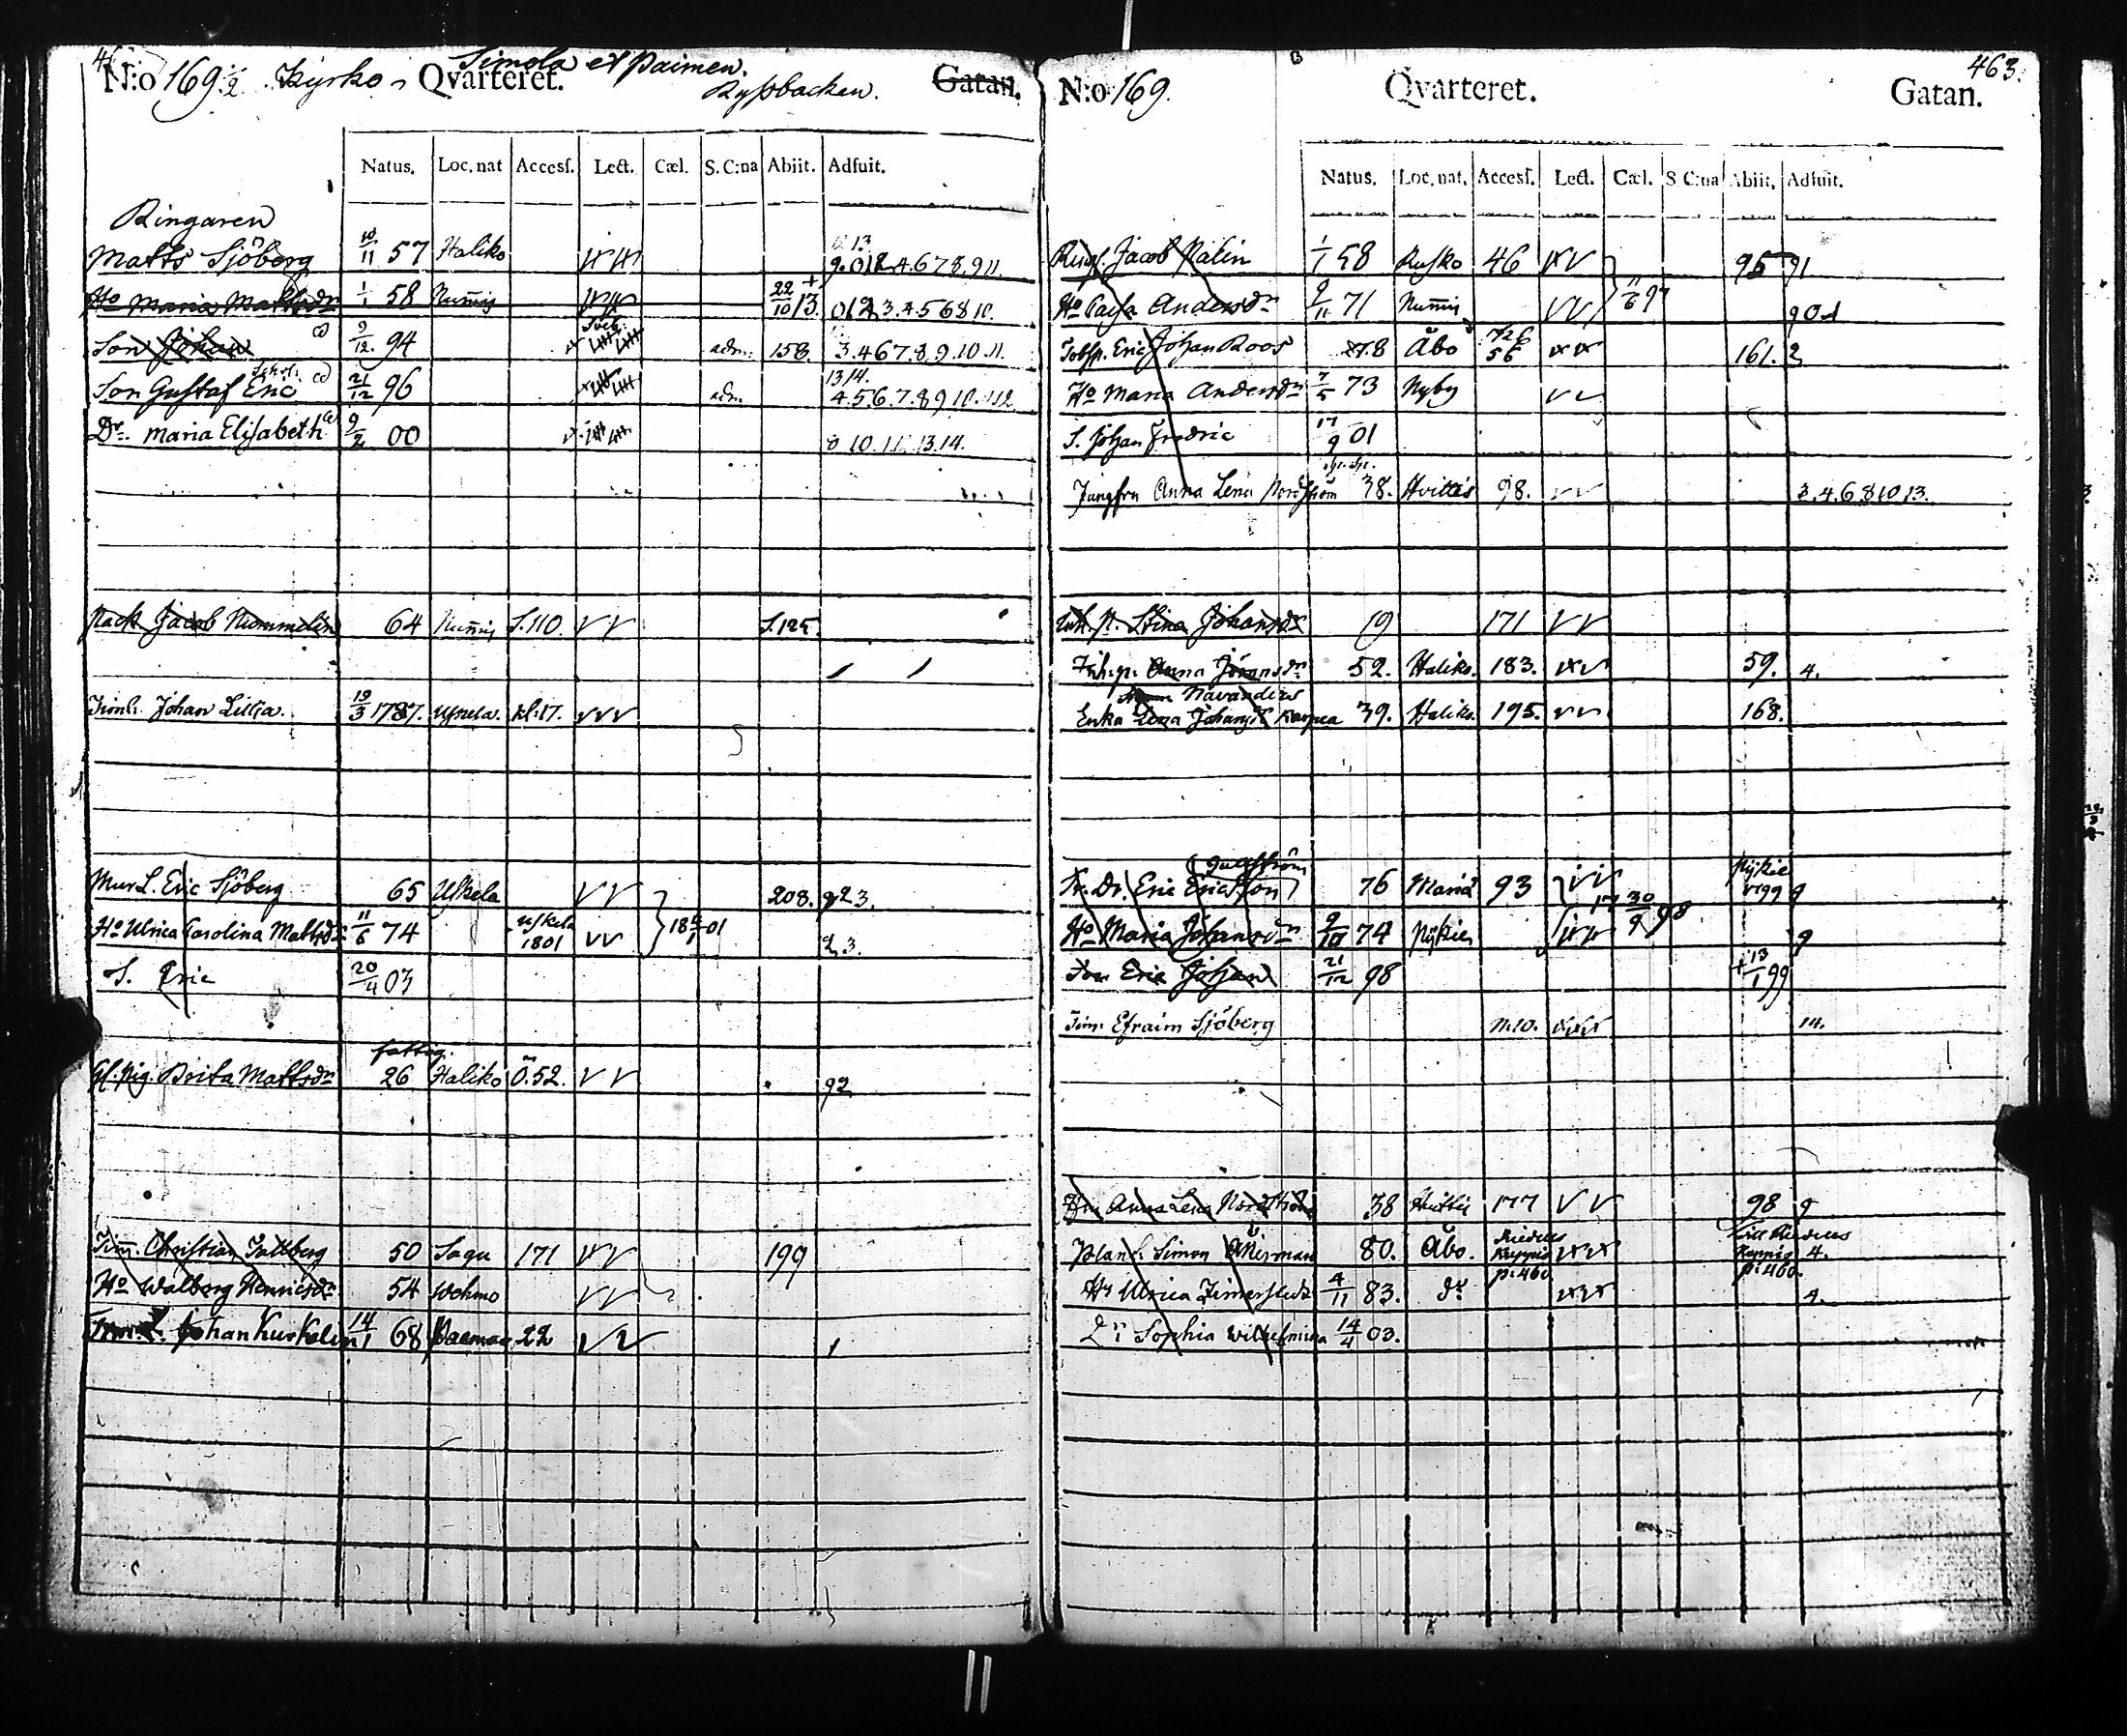 N:o 169 1/2 Kyrko Qvarteret. Simola et Paimen. Ryssbacken. Gatan.
Natus. Loc. nat Accesſ. Lect. Cæl. S. C:na Abiit. Adfuit.
Ringaren
Matts Sjöberg 10/11 57 Haliko 9. 0 1 2. 4. 6 7 8. 9 11. 13
Ho Maria Mattsdr 1/1 58 Num̄is 22/10 13. + 0 1 2 3. 4. 5 6 8 10.
Son Johan 9/12. 94 adm. 158. 3. 4 6 7. 8. 9. 10. 11.
Son Gustaf Eric 21/12 96 adm. 13 14. 4. 5 6. 7. 8 9 10. 11 12
Dr. Maria Elisabeth 9/2 00 8 10. 11. 13. 14.
Jacob Nummelin 64 Num̄is S. 110. V V S. 125.
Johan Lilja. 19/3 1787. Uskela. kl. 17. V V V
Mur L. Eric Sjöberg 65 Uskela V V 208. 9 2 3.
Ho Ulrica Carolina Mattsdr 11/6 74 Uskela 1801 V V 18 01 2. 3.
S. Eric 20/4 03
fattig.
Gl. Pig. Brita Mattsdr 26 Haliko Ö. 52. V V 92
Tim̄. Christian 50 Sagu 171 V V 199
Ho Walborg Henricsdr 54 Wehmo V V
Johan Kurkelin 14/1 68 Paemar 22 V V 1
463.
N:o 169. Qvarteret. Gatan.
Natus. Loc. nat. Accesſ. Lect. Cæl. S C:na Abiit. Adfuit.
Jacob Palin 1/1 58 Rusko 46 V V 95 91
Ho Caisa Andersdr 9/11 71 Num̄is V V 11/6 97 9 0 1
Eric Johan Roos 8 Åbo 56 161. 2
Ho Maria Andersdr 7/5 73 Nyby V V
S. Johan Fredric 17/9 01
Jungfru Anna Lena Nordström 38. Hvittis 98. V V 3. 4. 6 8 10 13.
Stina Johansdr 19 171 V V
Anna 52. Haliko. 183. 59. 4.
Navanders
Enka Lena Johansdr Karpea 39. Haliko 195. V V 168.
Eric Ericsson 76 Mariæ 93 V V Nykie 1799 9
Ho Maria Johansdr 9/10 74 Nykie 30/9 98 9
Son Eric Johan 21/12 98 + 13/1 99
Tim. Efraim Sjöberg n. 10. 14.
Anna Lena Nordström 38 Hvittis 177 V V 98 9
Simon Åkerman 80. Åbo. Kuppis p. 460. Kuppis p. 460. 4.
Ho Ulrica 4/11 83. do 4.
Dr Sophia Wilhelmina 14/4 03.